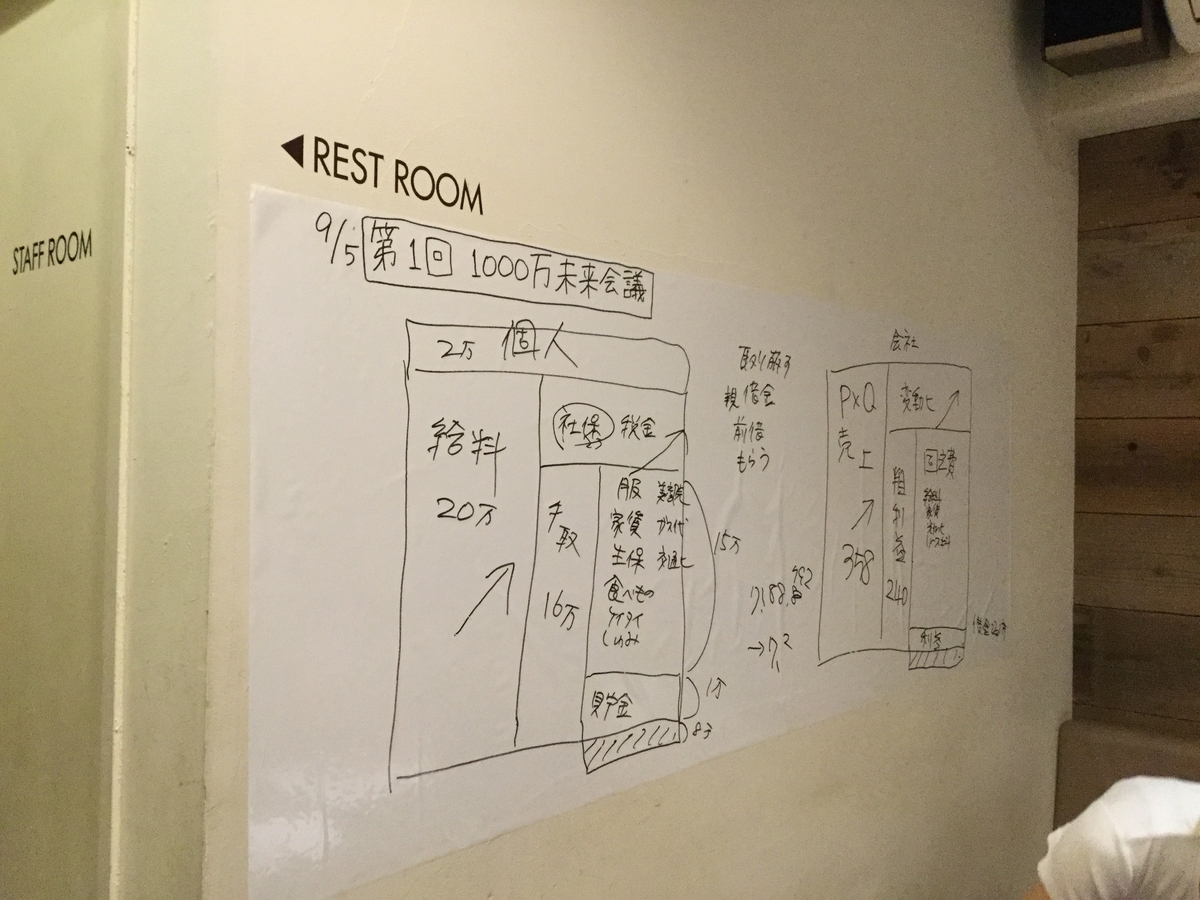 ◀REST ROOM
STAFF ROOM
9/5 第1回 1000万未来会議
2万 個人
給料
20万
社保 税金
手取
16万
服 美容院
家賃 ガス代
生保 交通ヒ
食べもの
ケイタイ
しゅみ
15万
貯金
1万
取り崩す
親 借金
前借
もらう
会社
P×Q
売上
358
変動ヒ
粗利益
240
固定費
給料
家賃
利益